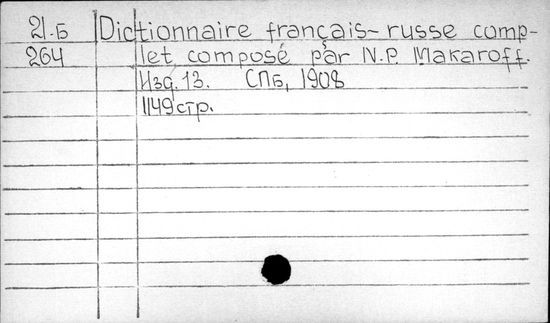 21.Б Dictionnaire français-russe comp-
264 let, composé par N.P. Makaroff.
Изд. 13. СПБ, 1908
1149 стр.